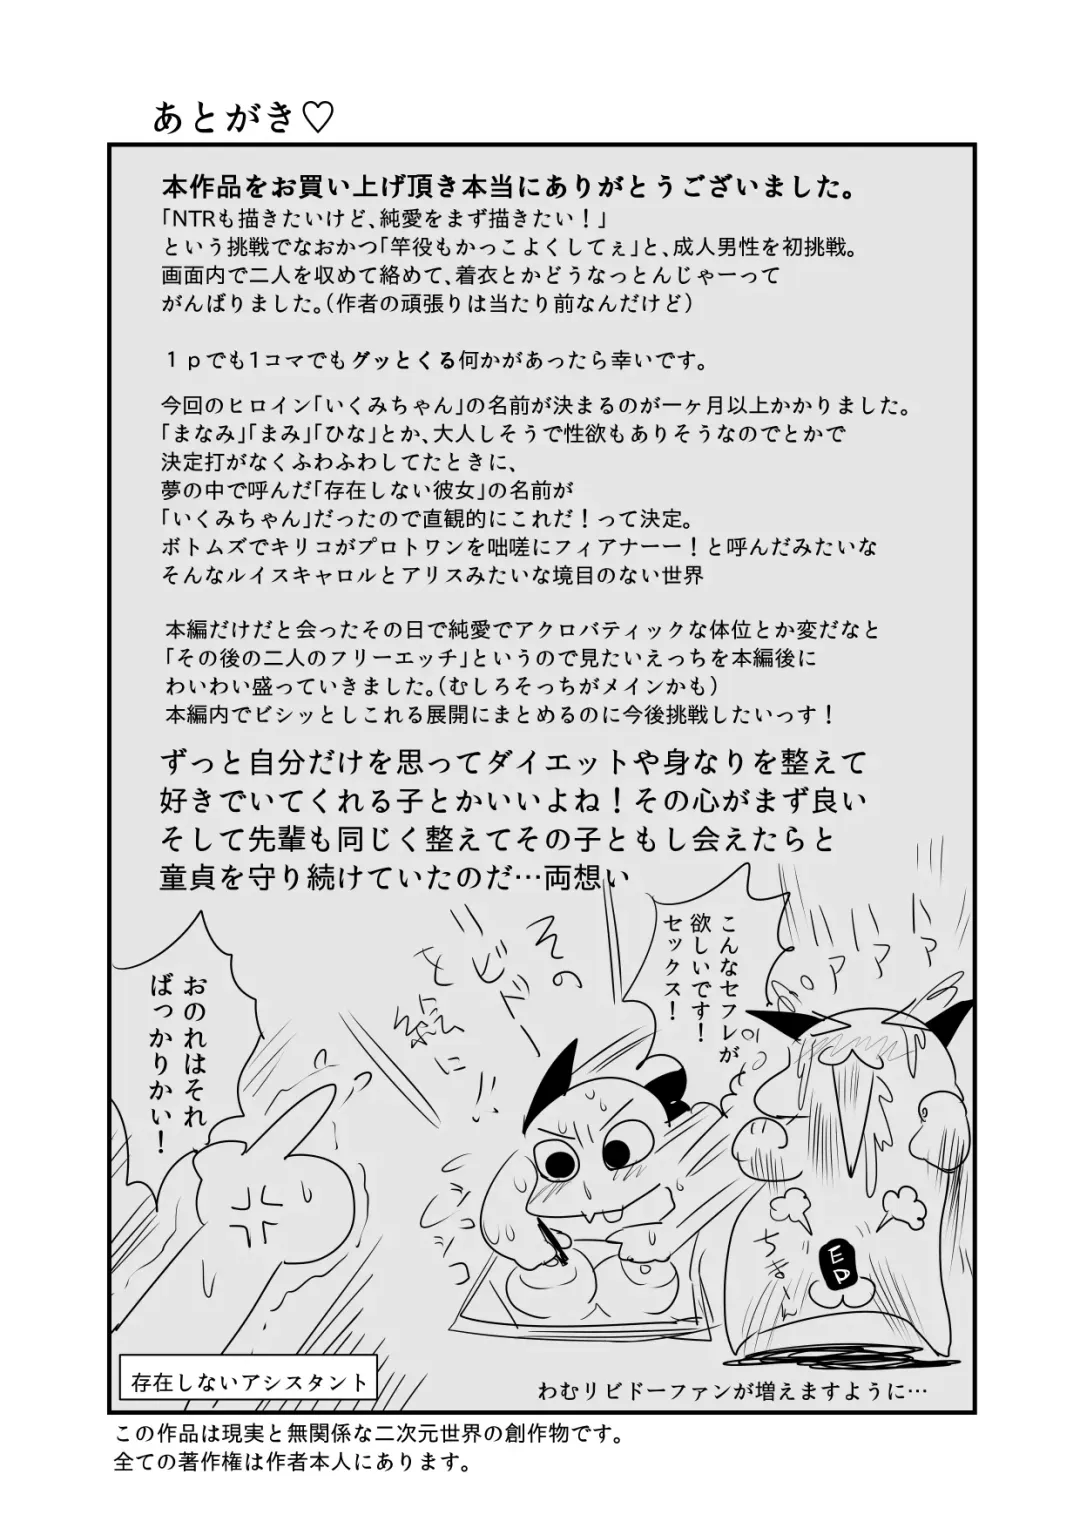 あとがき♡
本作品をお買い上げ頂き本当にありがとうございました。
「NTRも描きたいけど、純愛をまず描きたい！」
という挑戦でなおかつ「竿役もかっこよくしてぇ」と、成人男性を初挑戦。
画面内で二人を収めて絡めて、着衣とかどうなっとんじゃーって
がんばりました。（作者の頑張りは当たり前なんだけど）
１ｐでも1コマでもグッとくる何かがあったら幸いです。
今回のヒロイン「いくみちゃん」の名前が決まるのが一ヶ月以上かかりました。
「まなみ」「まみ」「ひな」とか、大人しそうで性欲もありそうなのでとかで
決定打がなくふわふわしてたときに、
夢の中で呼んだ「存在しない彼女」の名前が
「いくみちゃん」だったので直観的にこれだ！って決定。
ボトムズでキリコがプロトワンを咄嗟にフィアナーー！と呼んだみたいな
そんなルイスキャロルとアリスみたいな境目のない世界
本編だけだと会ったその日で純愛でアクロバティックな体位とか変だなと
「その後の二人のフリーエッチ」というので見たいえっちを本編後に
わいわい盛っていきました。（むしろそっちがメインかも）
本編内でビシッとしこれる展開にまとめるのに今後挑戦したいっす！
ずっと自分だけを思ってダイエットや身なりを整えて
好きでいてくれる子とかいいよね！その心がまず良い
そして先輩も同じく整えてその子ともし会えたらと
童貞を守り続けていたのだ…両想い
こんなセフレが
欲しいです！
セックス！
ハァハァハァ
その
リビドーを
絵に！！
おのれはそれ
ばっかりかい！
シコシコ
シコシコ
ちまーん
ED
存在しないアシスタント
わむリビドーファンが増えますように…
この作品は現実と無関係な二次元世界の創作物です。
全ての著作権は作者本人にあります。